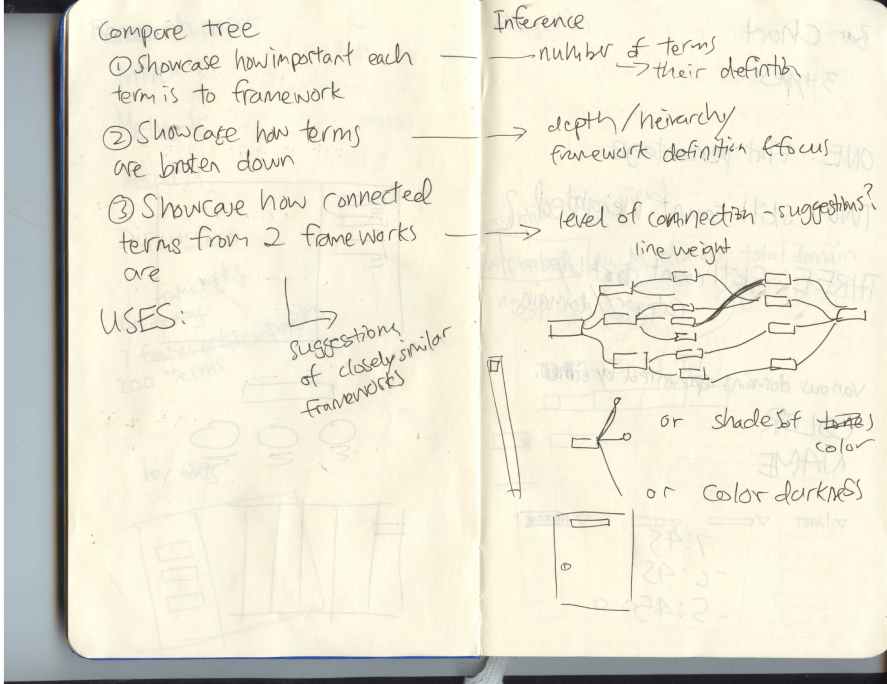 Compare tree
① Showcase how important each
term is to framework
② Showcase how terms
are broken down
③ Showcase how connected
terms from 2 frameworks
are
USES:
suggestions
of closely similar
frameworks
Inference
number of terms
their definition
depth/heirarchy/
framework definition & focus
level of connection - suggestions?
line weight
or shades of tones
color
or color darkness